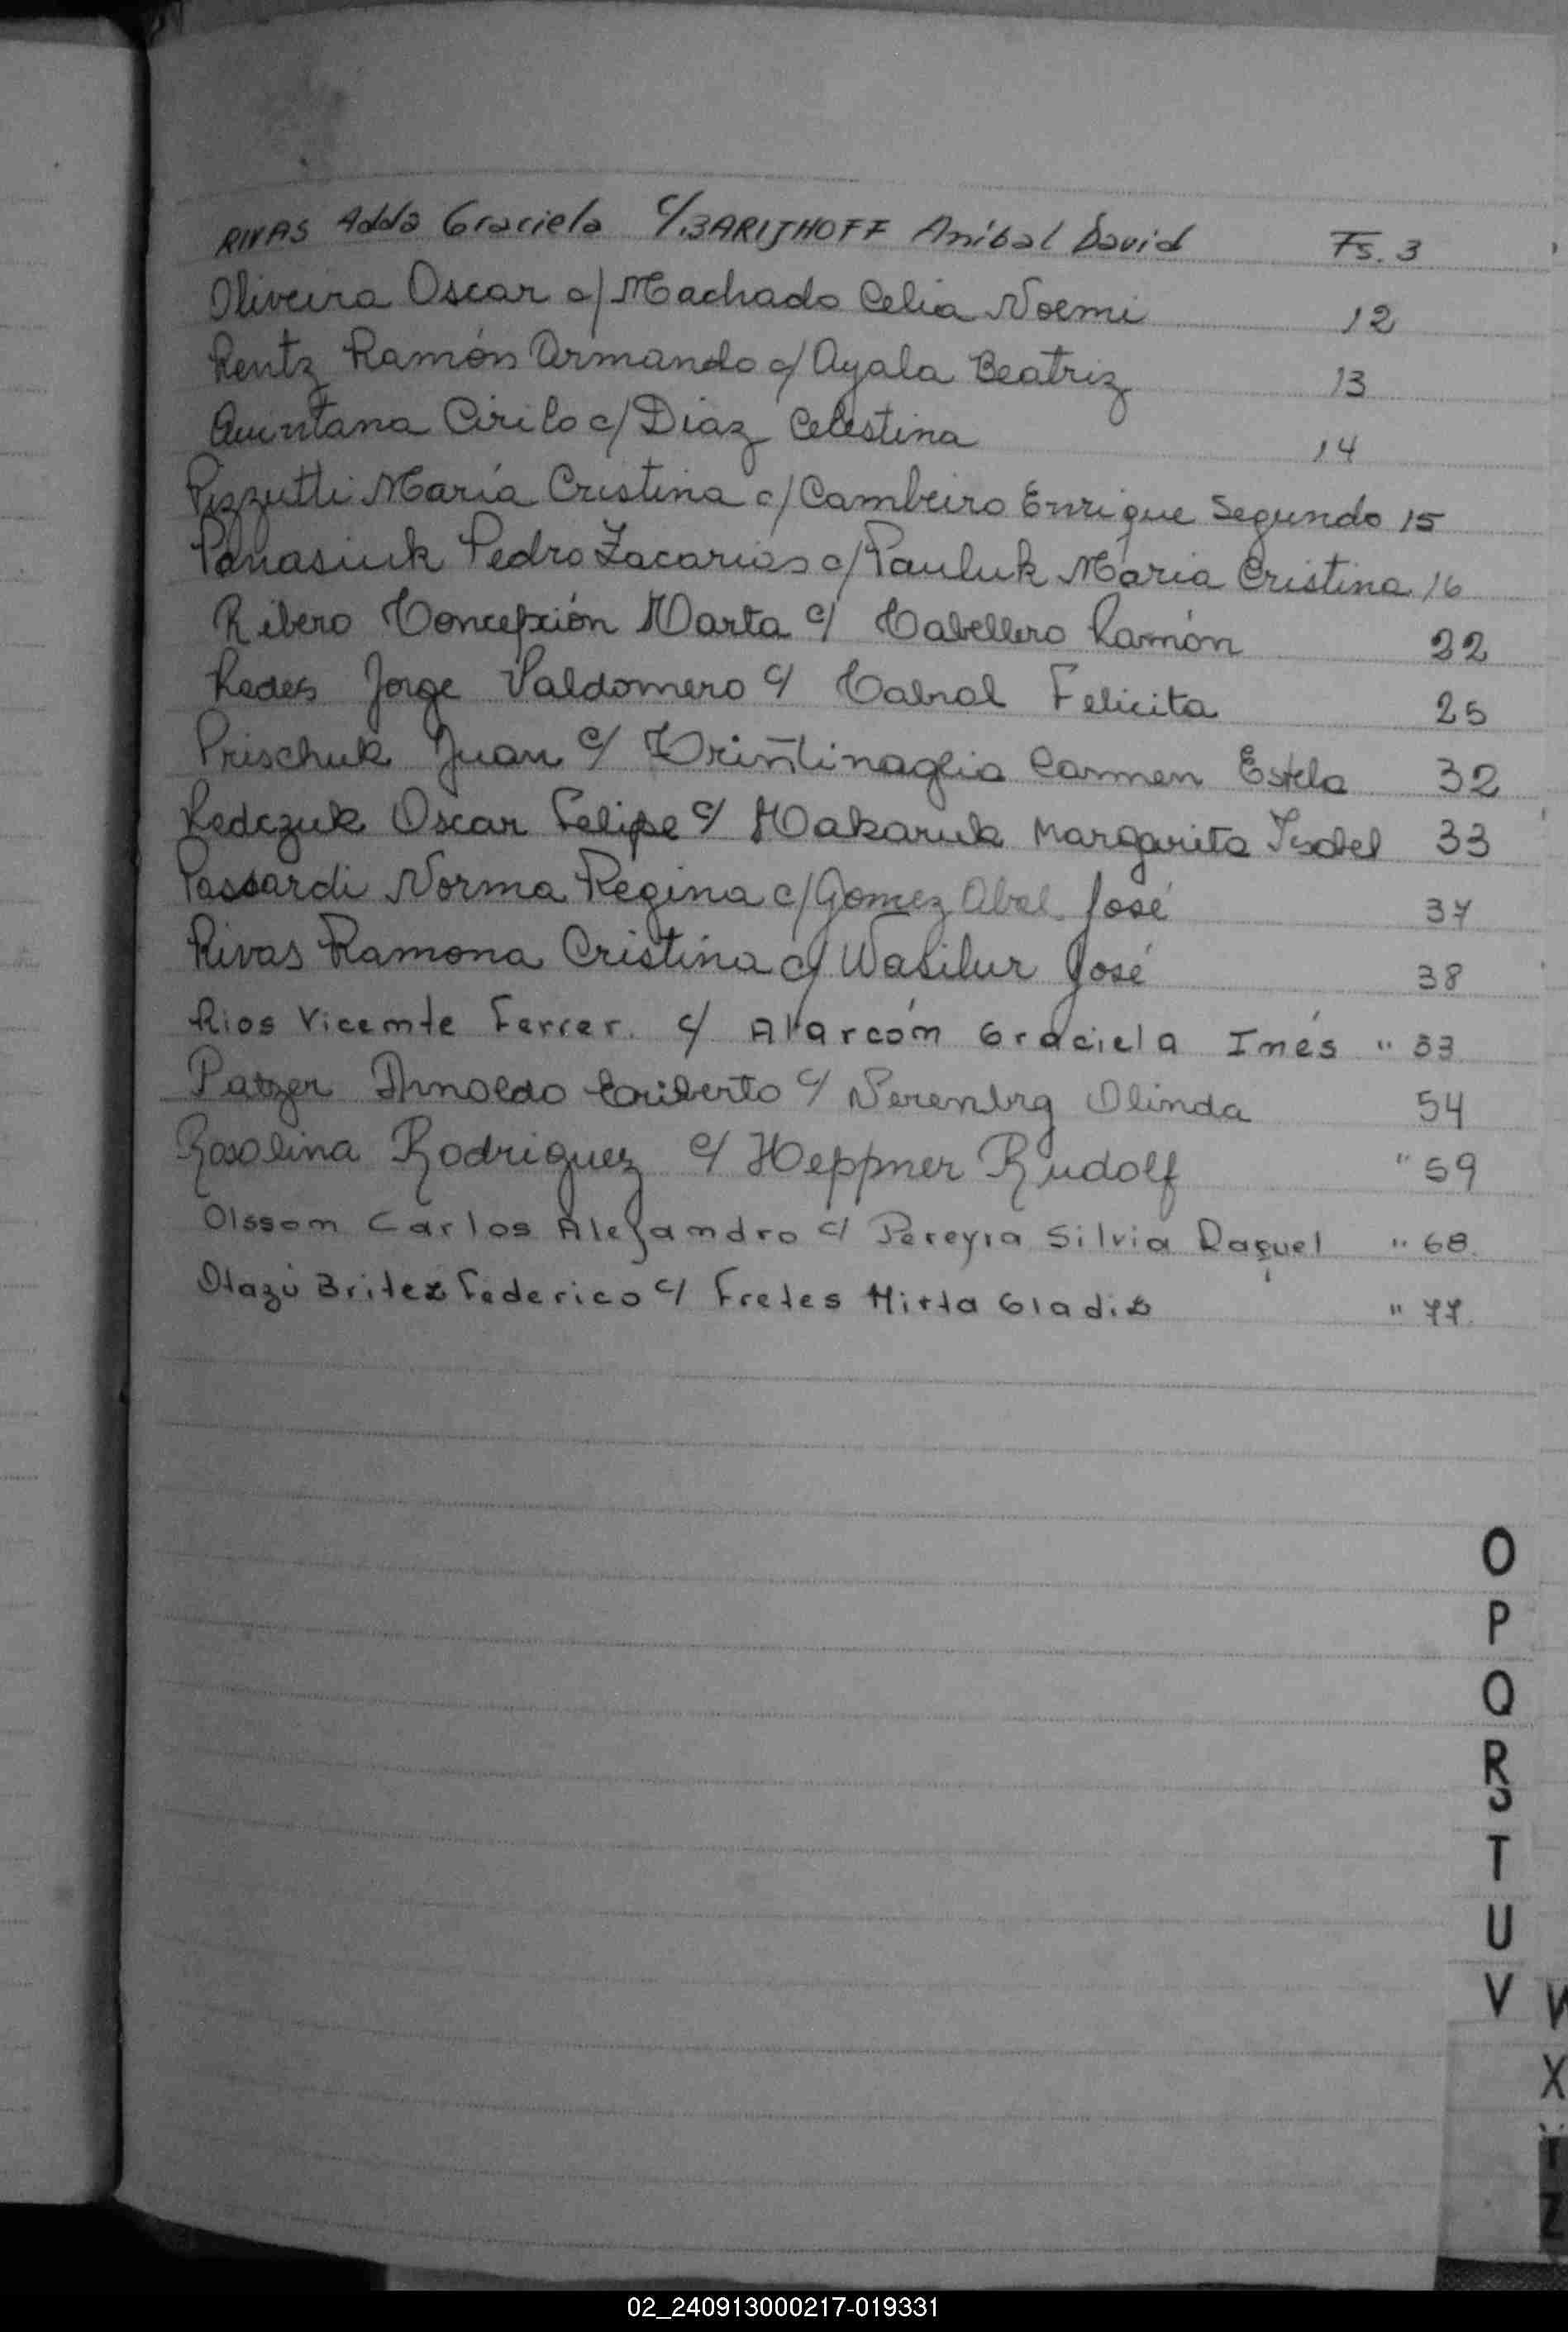 RIVAS Adda Graciela c/ BARIJHOFF Anibal David Fs. 3
Oliveira Oscar c/ Machado Celia Noemi 12
Rentz Ramón Armando c/ Ayala Beatriz 13
Quintana Cirilo c/ Diaz Celestina 14
Pizzutti María Cristina c/ Cambeiro Enrique Segundo 15
Panasiuk Pedro Zacarias c/ Pauluk Maria Cristina 16
Ribero Concepción Marta c/ Cabellero Ramón 22
Redes Jorge Valdomero c/ Cabral Felicita 25
Prischuk Juan c/ Carmen Estela 32
Redczuk Oscar Felipe c/ Makaruk Margarita Isabel 33
Passardi Norma Regina c/ Gomez Abel José 37
Rivas Ramona Cristina c/ Wasilur José 38
Rios Vicente Ferrer. c/ Alarcón Graciela Inés " 53
Patzer Arnoldo c/ Olinda 54
Rosolina Rodriguez c/ Heppner Rudolf " 59
Olsson Carlos Alejandro c/ Pereyra Silvia Raquel " 68.
Otazú Britez Federico c/ Fretes Mirta Gladis " 77.
O
P
Q
R
S
T
U
V
W
X
Y
Z
02_240913000217-019331